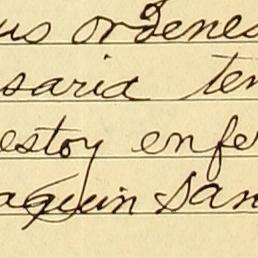 us ordenes
saria ten
estoy enfe
aquin San